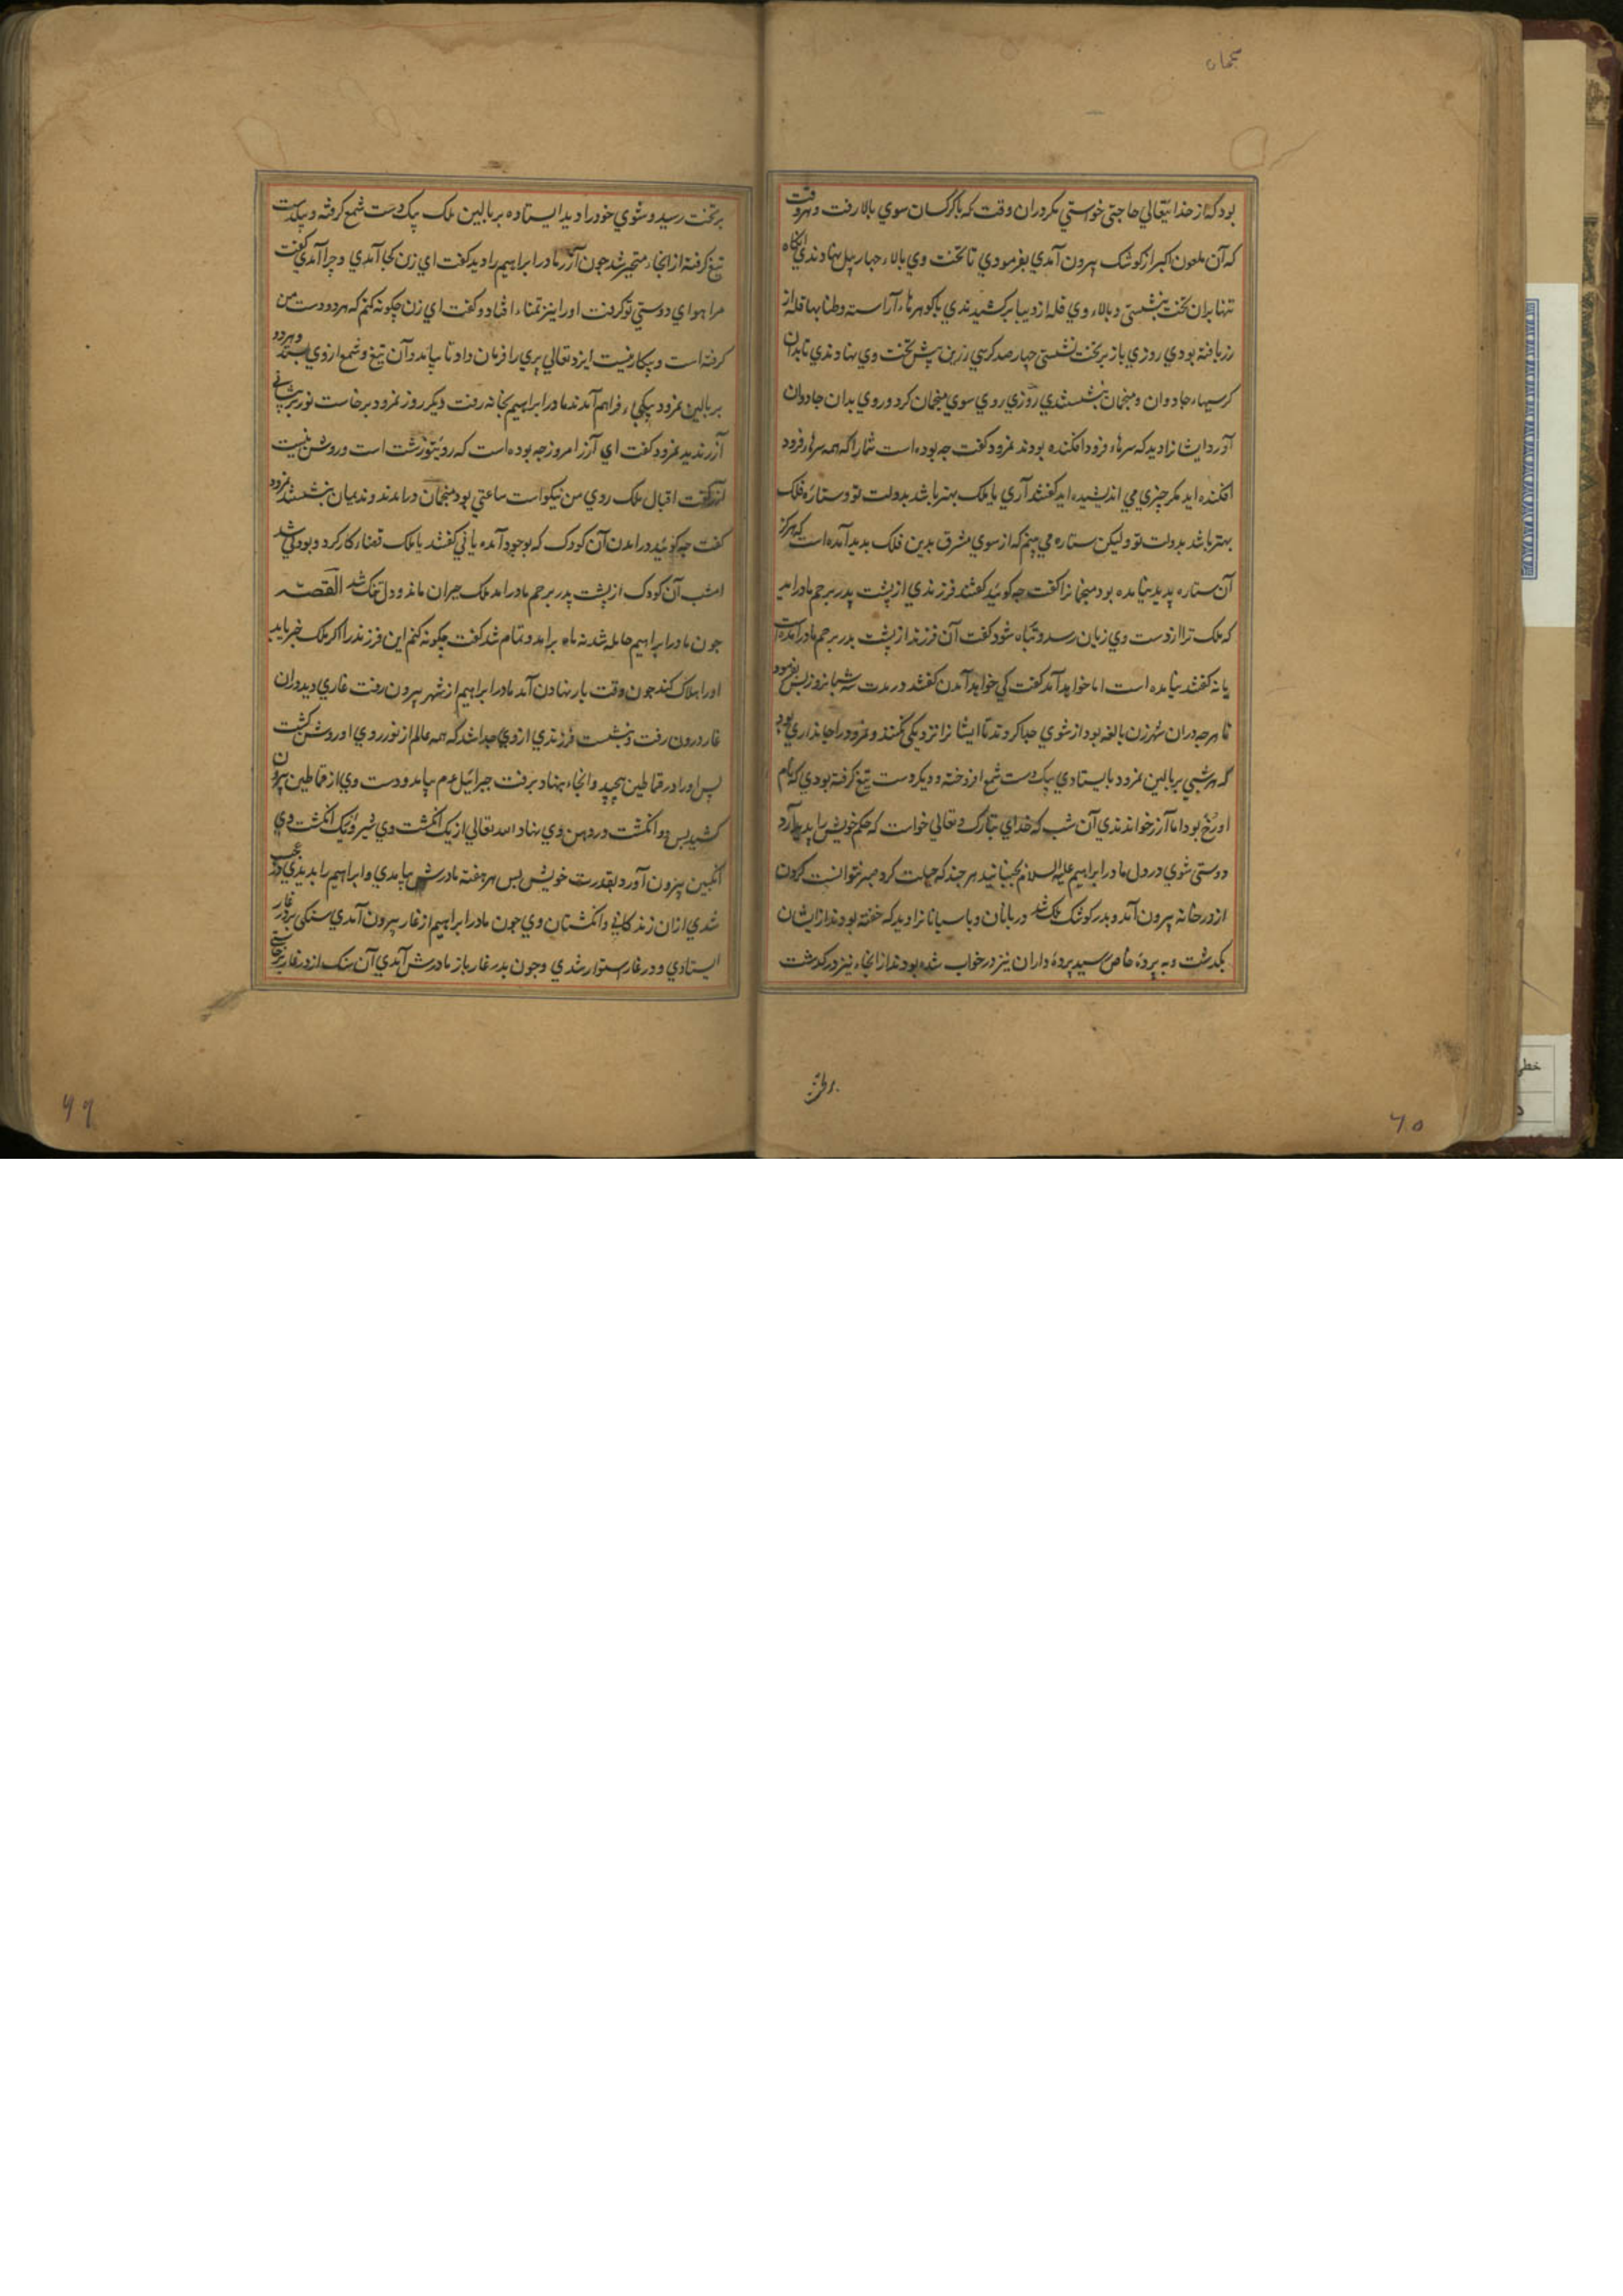 بود که از خدایتعالی حاجتی خواستی مکر دران وقت که با کرکسان سوی بالا رفت و هروقت
که آن ملعون اکبر از کوشک بیرون آمدی بفرمودی تا تخت وی بالاء چهار پیل نهادندی آنکاه
تنها بران تخت بنشستی و بالاء وی قله از دیبا برکشیدندی با کوهرهاء آراسته و طنابها قله از
زربافته بودی روزی باز بر تخت نشستی چهار صد کرسی زرین پیش تخت وی نهادندی تا بدان
کرسیها جادوان و منجمان بنشستندی روزی روی سوی منجمان کرد و روی بدان جادوان
آورد ایشانرا دید که سرهاء فرود افکنده بودند نمرود کفت چه بوده است شما را که همه سرها فرود
افکنده اید مکر چیزی می اندیشیده اید کفتند آری یا ملک بهتر باشد بدولت تو و ستارۀ فلک
بهتر باشد بدولت تو ولیکن ستاره می بینم که از سوی مشرق بدین فلک بدید آمده است که هرکز
آن ستاره پدید نیامده بود منجمانرا کفت چه کوئید کفتند فرزندی از پشت پدر برحم مادر آمد
که ملک ترا از دست وی زیان رسد و تباه شود کفت آن فرزند از پشت پدر برحم مادر آمده است
یا نه کفتند نیامده است اما خواهد آمد کفت کی خواهد آمدن کفتند در مدت سه شبانروز پس بفرمود
تا هر چه دران شهر زن بالغه بود از شوی جدا کردند تا ایشانرا نزدیکی نکنند و نمرود را جانداری بود
که هر شبی بر بالین نمرود بایستادی بیک دست شمع افروخته و دیکر دست تیغ کرفته بودی که نام
او رخ بود اما آزر خواندندی آن شب که خدای تبارک و تعالی خواست که حکم خویش را پدید آرد
دوستی شوی در دل مادر ابراهیم علیه السلام بجنبانید هر چند که حیلت کرد صبر نتوانست کردن
از در خانه بیرون آمد و بدر کوشک ملک شد دربانان و پاسبانانرا دید که خفته بودند از ایشان
بکذشت و به پردۀ خاص رسید پرده داران نیز در خواب شده بودند از انجاء نیز درکذشت
بر تخت رسید و شوی خود را دید ایستاده بر بالین ملک بیک دست شمع کرفته و بیکدست
تیغ کرفته از انجاء متحیر شد چون آزر مادر ابراهیم را دید کفت ای زن کجا آمدی و چرا آمدی کفت
مرا هوای دوستی تو کرفت او را نیز تمناء افتاد و کفت ای زن چکونه کنم که هر دو دست من
کرفته است و بیکار نیست ایزد تعالی پری را فرمان داد تا بیامد و آن تیغ و شمع از وی بستد و هر دو
بر بالین نمرود بیکجاء فراهم آمدند مادر ابراهیم بخانه رفت دیکر روز نمرود برخاست نور بر پیشانی
آزر ندید نمرود کفت ای آزر امروز چه بوده است که روی تو زشت است و روشن نیست
آزر کفت اقبال ملک روی من نیکو است ساعتی بود منجمان درآمدند و ندیمان بنشستند نمرود
کفت چه کوئید در آمدن آن کودک که بوجود آمده یا نی کفتند یا ملک قضاء کار کرد و بودنی شد
امشب آن کودک از پشت پدر برحم مادر آمد ملک حیران ماند و دل تنک شد القصه
چون مادر ابراهیم حامله شد نه ماه برآمد و تمام شد کفت چکونه کنم این فرزند را اکر ملک خبر یابد
او را هلاک کند چون وقت بار نهادن آمد مادر ابراهیم از شهر بیرون رفت غاری دید دران
غار درون رفت و بنشست فرزندی از وی جدا شد که همه عالم از نور روی او روشن کشت
پس او را در قماطین بپیچید و انجاء بنهاد برفت جبرائیل ع م بیامد و دست وی از قماطین بیرون
کشید پس دو انکشت در دهن وی نهاد الله تعالی از یک انکشت وی شیر و از یک انکشت وی
انکبین بیرون آورد بقدرت خویش پس هر هفته مادرش بیامدی و ابراهیم را بدیدی عجب
شدی ازان زندکانی و انکشتان وی چون مادر ابراهیم از غار بیرون آمدی سنکی بر در غار
ایستادی و در غار استوار شدی و چون بدر غار باز مادرش آمدی آن سنک از در غار برخاستی
برتخت
۶۵
۶۶
خطی